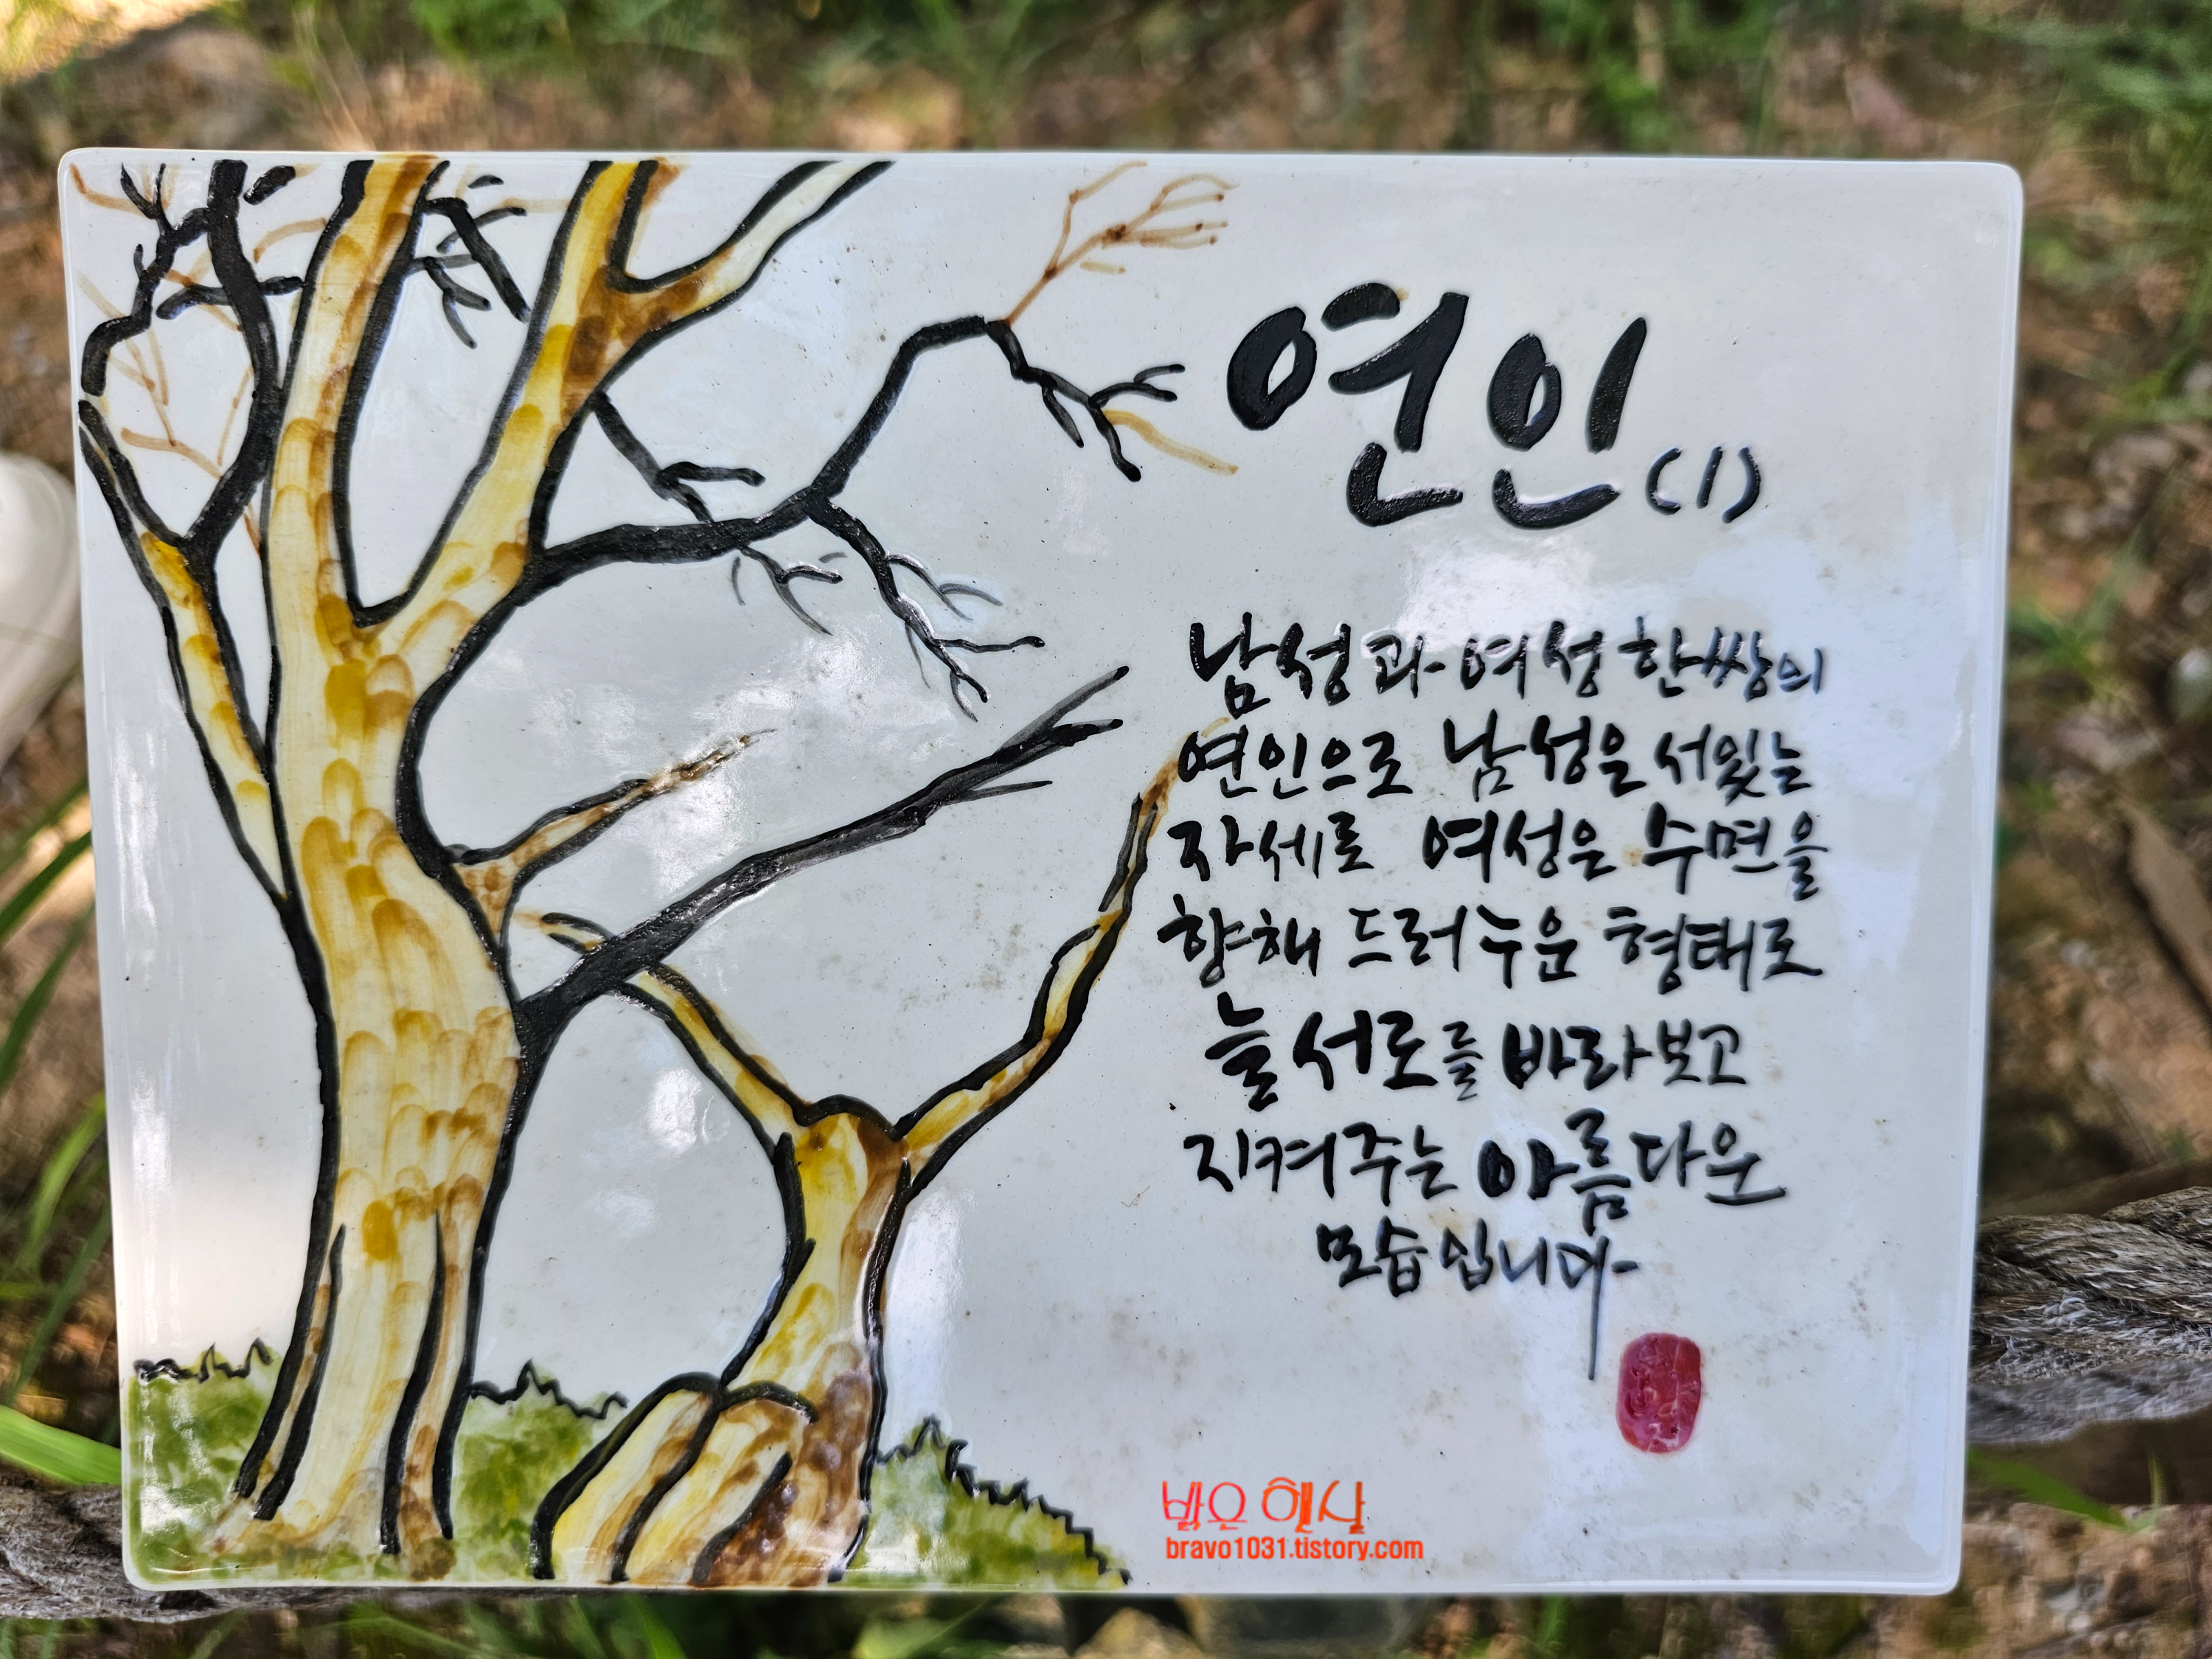 연인(1)
남성과 여성 한쌍의
연인으로 남성은 서있는
자세로 여성은 수면을
향해 드러누운 형태로
늘 서로를 바라보고
지켜주는 아름다운
모습입니다
밝은 햇살
bravo1031.tistory.com